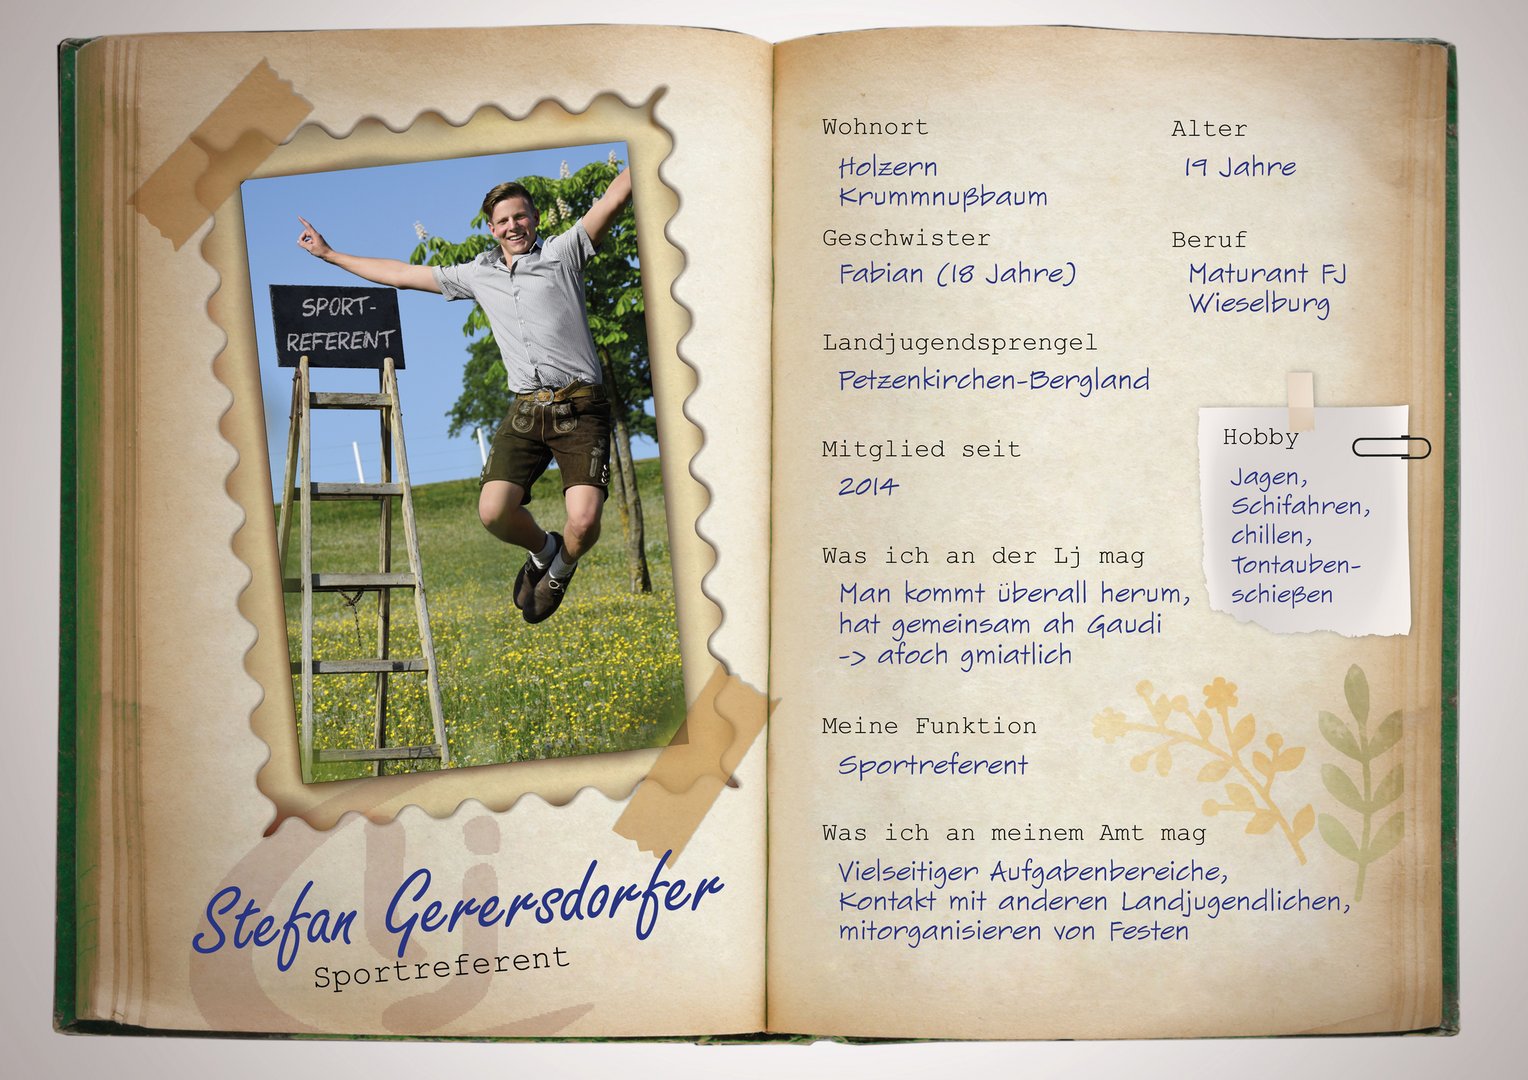 SPORT-
REFERENT
Lj
Stefan Gerersdorfer
Sportreferent
Wohnort
Holzern
Krummnußbaum
Alter
19 Jahre
Geschwister
Fabian (18 Jahre)
Beruf
Maturant FJ
Wieselburg
Landjugendsprengel
Petzenkirchen-Bergland
Mitglied seit
2014
Hobby
Jagen,
Schifahren,
chillen,
Tontauben-
schießen
Was ich an der Lj mag
Man kommt überall herum,
hat gemeinsam ah Gaudi
-> afoch gmiatlich
Meine Funktion
Sportreferent
Was ich an meinem Amt mag
Vielseitiger Aufgabenbereiche,
Kontakt mit anderen Landjugendlichen,
mitorganisieren von Festen